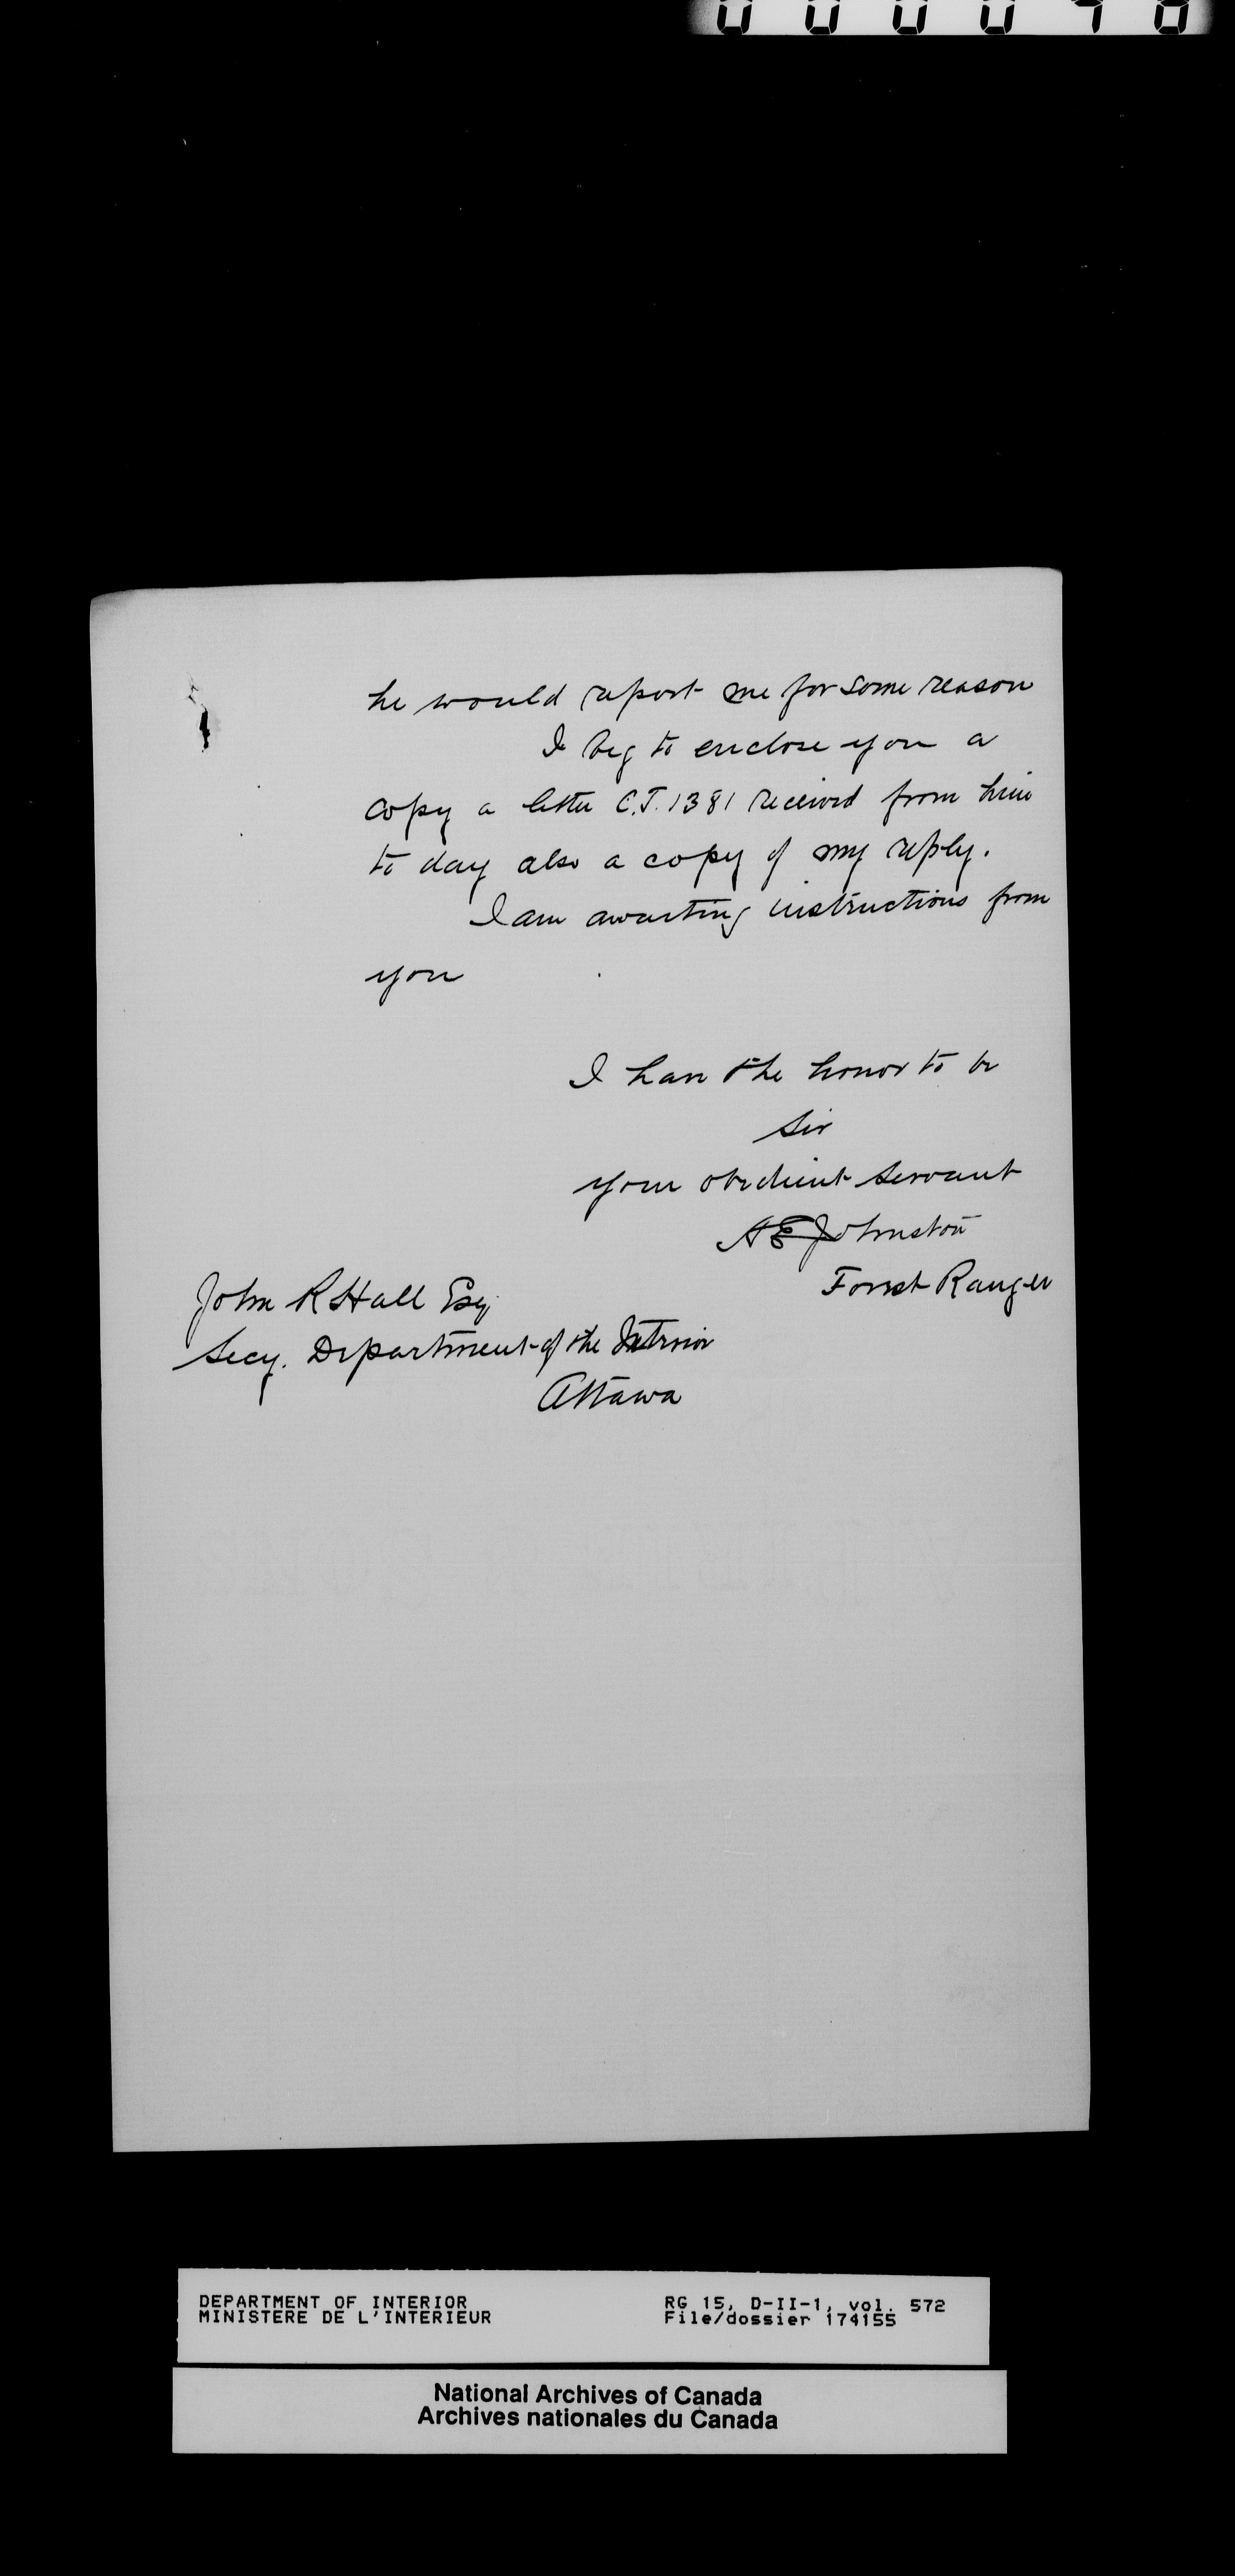 he would report me for some reason
I beg to enclose you a
copy a letter C.T. 1381 received from him
to day also a copy of my reply.
I am awaiting instructions from
you
I have the honor to be
Sir
your obedient servant
A E Johnston
Forest Ranger
John R Hall Esq
Secy. Department of the Interior
Ottawa
DEPARTMENT OF INTERIOR
MINISTERE DE L'INTERIEUR
RG 15, D-II-1, vol. 572
File/dossier 174155
National Archives of Canada
Archives nationales du Canada